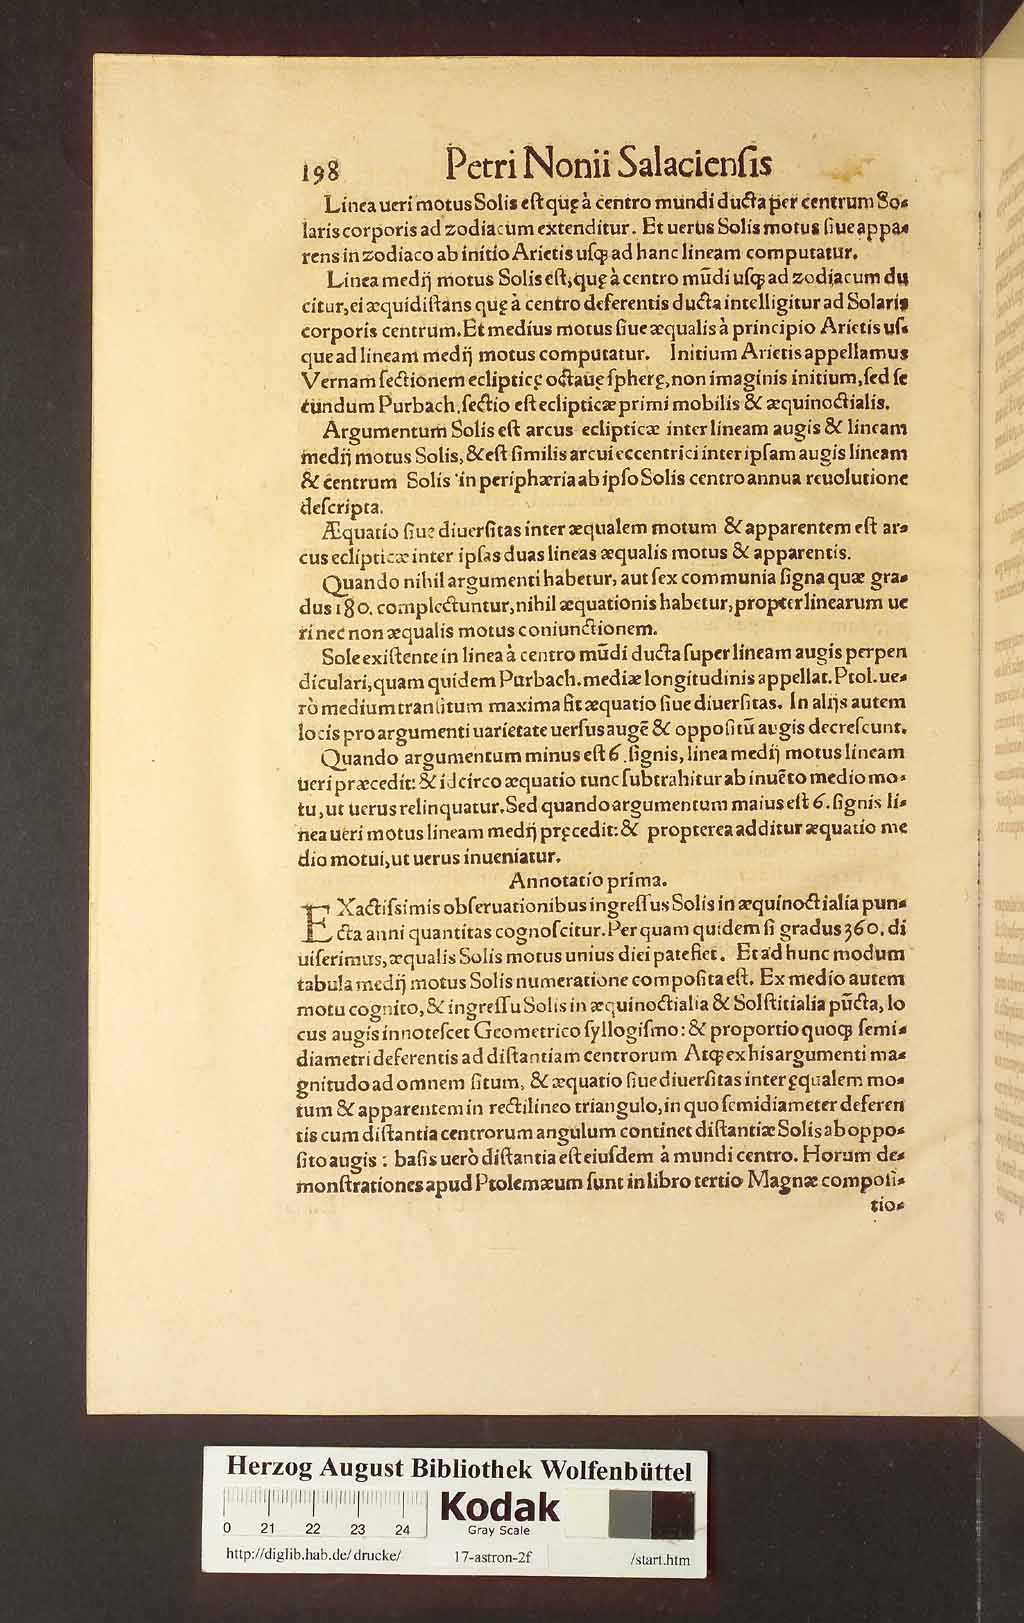 198 Petri Nonii Salaciensis
Linea ueri motus Solis est quę à centro mundi ducta per centrum So-
laris corporis ad zodiacum extenditur. Et uerus Solis motus siue appa-
rens in zodiaco ab initio Arietis usq; ad hanc lineam computatur.
Linea medij motus Solis est, quę à centro mūdi usq; ad zodiacum du
citur, ei æquidistans quę à centro deferentis ducta intelligitur ad Solaris
corporis centrum. Et medius motus siue æqualis à principio Arietis us-
que ad lineam medij motus computatur. Initium Arietis appellamus
Vernam sectionem eclipticę octauę spherę, non imaginis initium, sed se
cundum Purbach. sectio est eclipticæ primi mobilis & æquinoctialis.
Argumentum Solis est arcus eclipticæ inter lineam augis & lineam
medij motus Solis, & est similis arcui eccentrici inter ipsam augis lineam
& centrum Solis in periphæria ab ipso Solis centro annua reuolutione
descripta.
Æquatio siue diuersitas inter æqualem motum & apparentem est ar-
cus eclipticæ inter ipsas duas lineas æqualis motus & apparentis.
Quando nihil argumenti habetur, aut sex communia signa quæ gra-
dus 180. complectuntur, nihil æquationis habetur, propter linearum ue
ri nec non æqualis motus coniunctionem.
Sole existente in linea à centro mūdi ducta super lineam augis perpen
diculari, quam quidem Purbach. mediæ longitudinis appellat. Ptol. ue-
rò medium transitum maxima fit æquatio siue diuersitas. In alijs autem
locis pro argumenti uarietate uersus augē & oppositū augis decrescunt.
Quando argumentum minus est 6. signis, linea medij motus lineam
ueri præcedit: & idcirco æquatio tunc subtrahitur ab inuēto medio mo-
tu, ut uerus relinquatur. Sed quando argumentum maius est 6. signis li-
nea ueri motus lineam medij pręcedit: & propterea additur æquatio me
dio motui, ut uerus inueniatur.
Annotatio prima.
EXactissimis obseruationibus ingressus Solis in æquinoctialia pun-
cta anni quantitas cognoscitur. Per quam quidem si gradus 360. di
uiserimus, æqualis Solis motus unius diei patefiet. Et ad hunc modum
tabula medij motus Solis numeratione composita est. Ex medio autem
motu cognito, & ingressu Solis in æquinoctialia & Solstitialia pūcta, lo
cus augis innotescet Geometrico syllogismo: & proportio quoq; semi-
diametri deferentis ad distantiam centrorum Atq; ex his argumenti ma-
gnitudo ad omnem situm, & æquatio siue diuersitas inter ęqualem mo-
tum & apparentem in rectilineo triangulo, in quo semidiameter deferen
tis cum distantia centrorum angulum continet distantiæ Solis ab oppo-
sito augis: basis uerò distantia est eiusdem à mundi centro. Horum de-
monstrationes apud Ptolemæum sunt in libro tertio Magnæ compositi-
tio-
Herzog August Bibliothek Wolfenbüttel
0 21 22 23 24
Kodak
Gray Scale
http://diglib.hab.de/drucke/ 17-astron-2f /start.htm